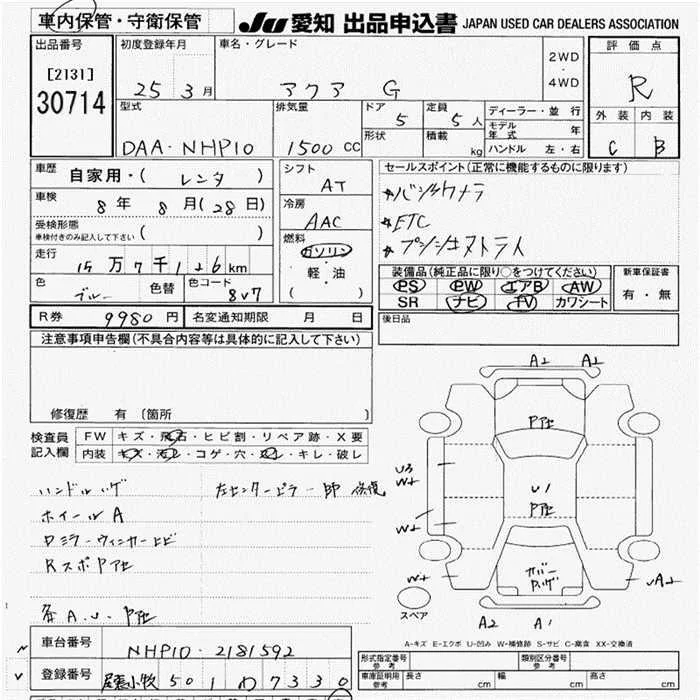 車内保管・守衛保管 JU 愛知 出品申込書 JAPAN USED CAR DEALERS ASSOCIATION
出品番号 初度登録年月 車名・グレード 評価点
[2131] 25 3月 アクア G 2WD・4WD R
30714
型式 排気量 ドア 5 定員 5人 ディーラー・並行 外装 内装
DAA-NHP10 1500cc 形状 積載 kg モデル年式 年 C B
ハンドル 左・右
車歴 自家用・(レンタ) シフト AT セールスポイント(正常に機能するものに限ります)
車検 8年 8月(28日) 冷房 AAC *バックカメラ
受検形態 車検付きのみ記入して下さい ( ) *ETC
走行 15万7千126km 燃料 ガソリン *プッシュスタート
軽・油
( )
色 ブルー 色替 色コード 8V7
装備品(純正品に限り○をつけてください) 新車保証書
PS PW エアB AW 有・無
SR ナビ TV カワシート
R券 9980円 名変通知期限 月 日 後日品
注意事項申告欄(不具合内容等は具体的に記入して下さい)
修復歴 有 (箇所 )
検査員記入欄 FW キズ・飛石・ヒビ割・リペア跡・X要
内装 キズ・汚レ・コゲ・穴・キレ・破レ
ハンドルハゲ 左センターピラー部 修復
ホイールA
ロミラーウィンカーヒビ
RスポP腔
各A.U.P腔
A2 A2
U3
W+
U1
W+
W+ カバー UA2
スペア A2 A1
A-キズ E-エクボ U-凹み W-補修跡 S-サビ C-腐食 XX-交換済
車台番号 NHP10-2181592
登録番号 尾張小牧 501 わ 7330
形式指定番号 参考 類別区分番号 参考
車庫証明用 参考 長さ cm 幅 cm 高さ cm